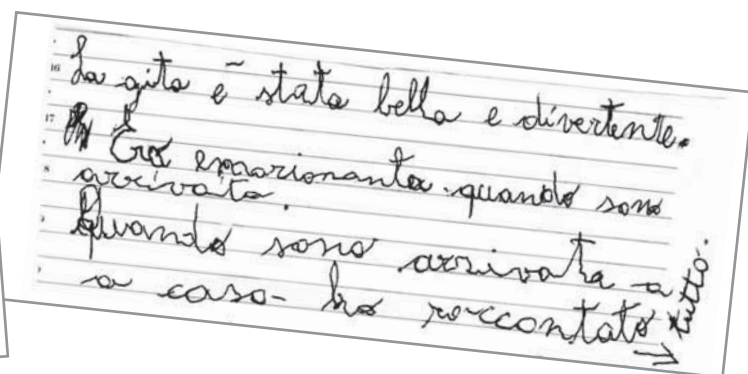 La gita è stata bella e divertente.
Ero emozionanta quando sono
arrivata.
Quando sono arrivata a
a casa ho raccontato →
tutto.